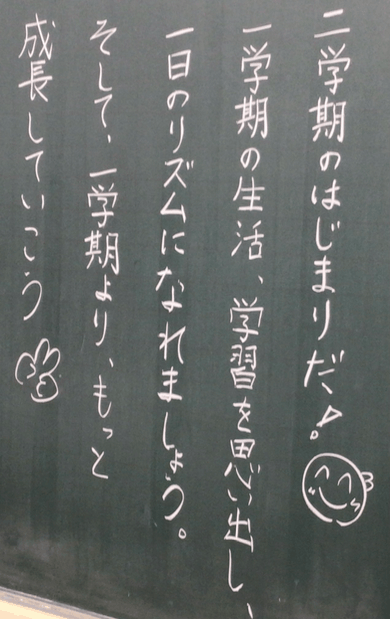 二学期のはじまりだ!
一学期の生活、学習を思い出し、
一日のリズムになれましょう。
そして、一学期より、もっと
成長していこう